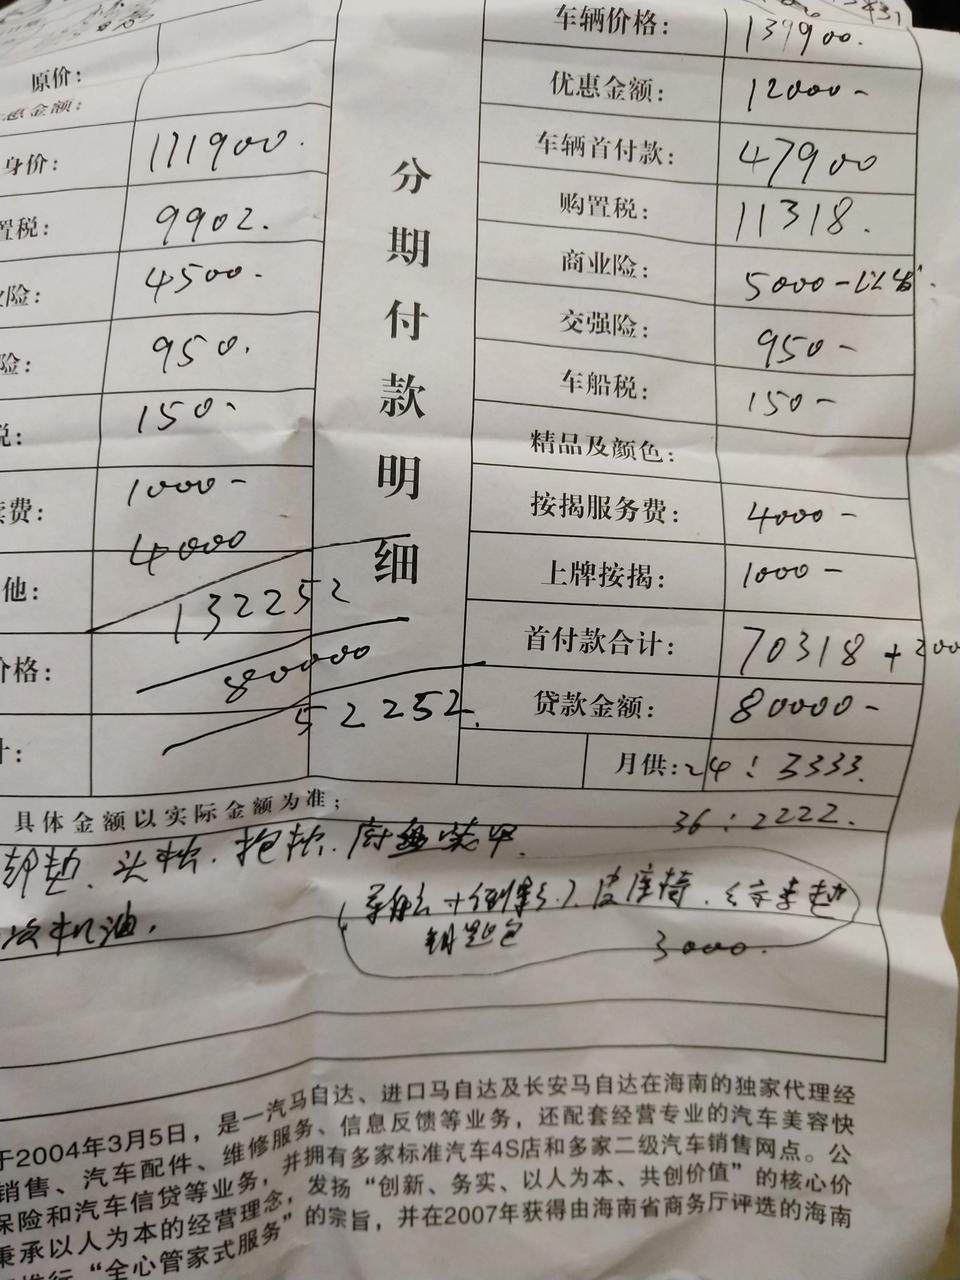 原价:
惠金额:
身价: 111900.
置税: 9902.
业险: 4500-
险: 950.
税: 150-
续费: 1000-
他: 4000
132252
价格: 80000
计: 52252.
分期付款明细
车辆价格: 139900.
优惠金额: 12000-
车辆首付款: 47900
购置税: 11318.
商业险: 5000-
交强险: 950-
车船税: 150-
精品及颜色:
按揭服务费: 4000-
上牌按揭: 1000-
首付款合计: 70318 + 300
贷款金额: 80000-
月供: 24: 3333.
36: 2222.
具体金额以实际金额为准;
脚垫、头枕、抱枕、
皮座椅、
机油.
钥匙包 3000.
于2004年3月5日，是一汽马自达、进口马自达及长安马自达在海南的独家代理经
销售、汽车配件、维修服务、信息反馈等业务，还配套经营专业的汽车美容快
保险和汽车信贷等业务，并拥有多家标准汽车4S店和多家二级汽车销售网点。公
秉承以人为本的经营理念，发扬“创新、务实、以人为本、共创价值”的核心价
推行“全心管家式服务”的宗旨，并在2007年获得由海南省商务厅评选的海南